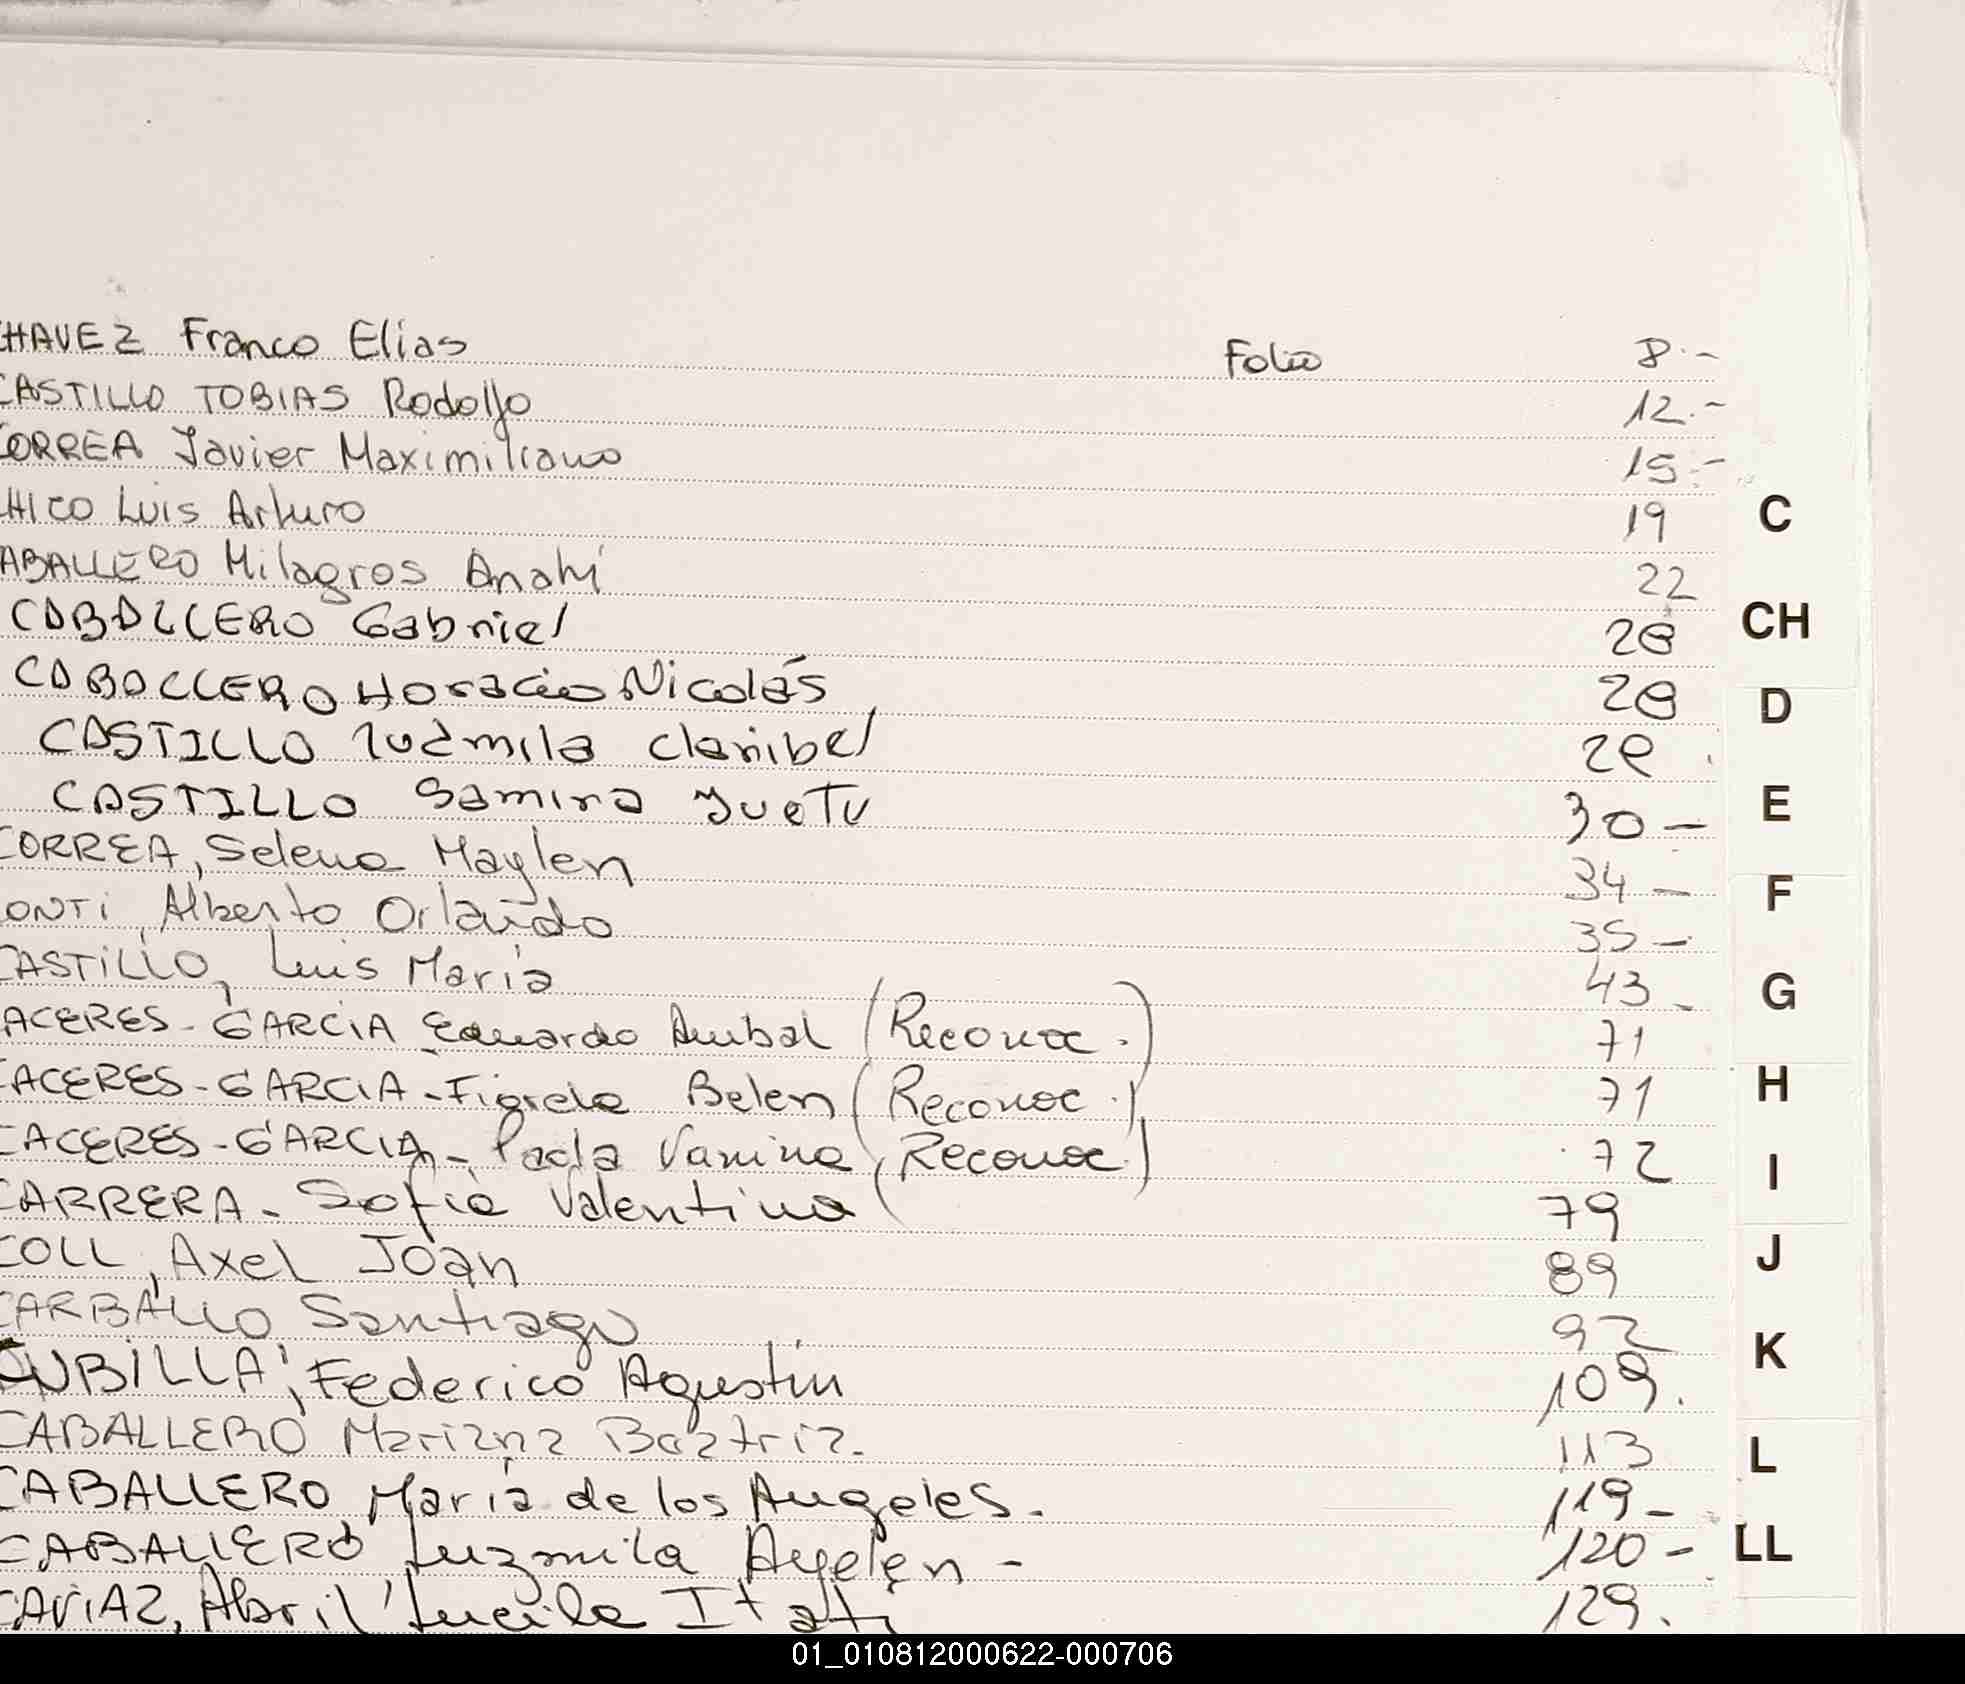 CHAVEZ Franco Elias Folio 8.-
CASTILLO TOBIAS Rodolfo 12.-
CORREA Javier Maximiliano 15.-
CHICO Luis Arturo 19
CABALLERO Milagros Anahí 22
CABALLERO Gabriel 28
CABALLERO Horacio Nicolás 28
CASTILLO Ludmila Claribel 29
CASTILLO Samira 30-
CORREA, Selena Maylen 34-
CONTI, Alberto Orlando 35-
CASTILLO, Luis María 43-
CACERES-GARCIA Eduardo Anibal (Reconoc.) 71
CACERES-GARCIA-Fiorela Belen (Reconoc.) 71
CACERES-GARCIA-Paola Vanina (Reconoc.) 72
CARRERA-Sofía Valentina 79
COLL, Axel Joan 89
CARBALLO Santiago 92
CUBILLA, Federico Agustín 109.
CABALLERO Mariana Beatriz. 113
CABALLERO María de los Angeles. 119-
CABALLERO Luzmila Ayelen- 120-
Abril Lucila Itatí 129.
C
CH
D
E
F
G
H
I
J
K
L
LL
01_010812000622-000706